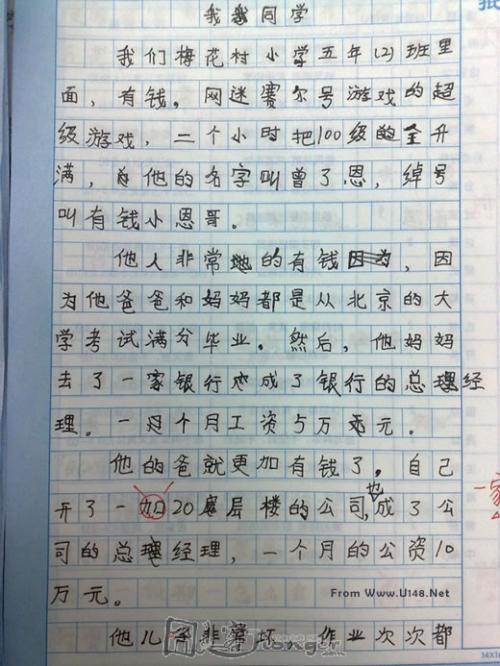 我同学
我们梅花村小学五年(2)班里
面，有钱。网迷赛尔号游戏的超
级游戏，二个小时把100级的全升
满，他的名字叫曾了恩，绰号
叫有钱小恩哥。
他人非常地的有钱，因
为他爸爸和妈妈都是从北京的大
学考试满分毕业。然后，他妈妈
去了一家银行成了银行的总理经
理。一个月工资5万元。
他的爸就更加有钱了，自己
开了一加20层楼的公司，也成了公
一家
司的总经理，一个月的公资10
万元。
From Www.U148.Net
他儿非常坏，作业次次都